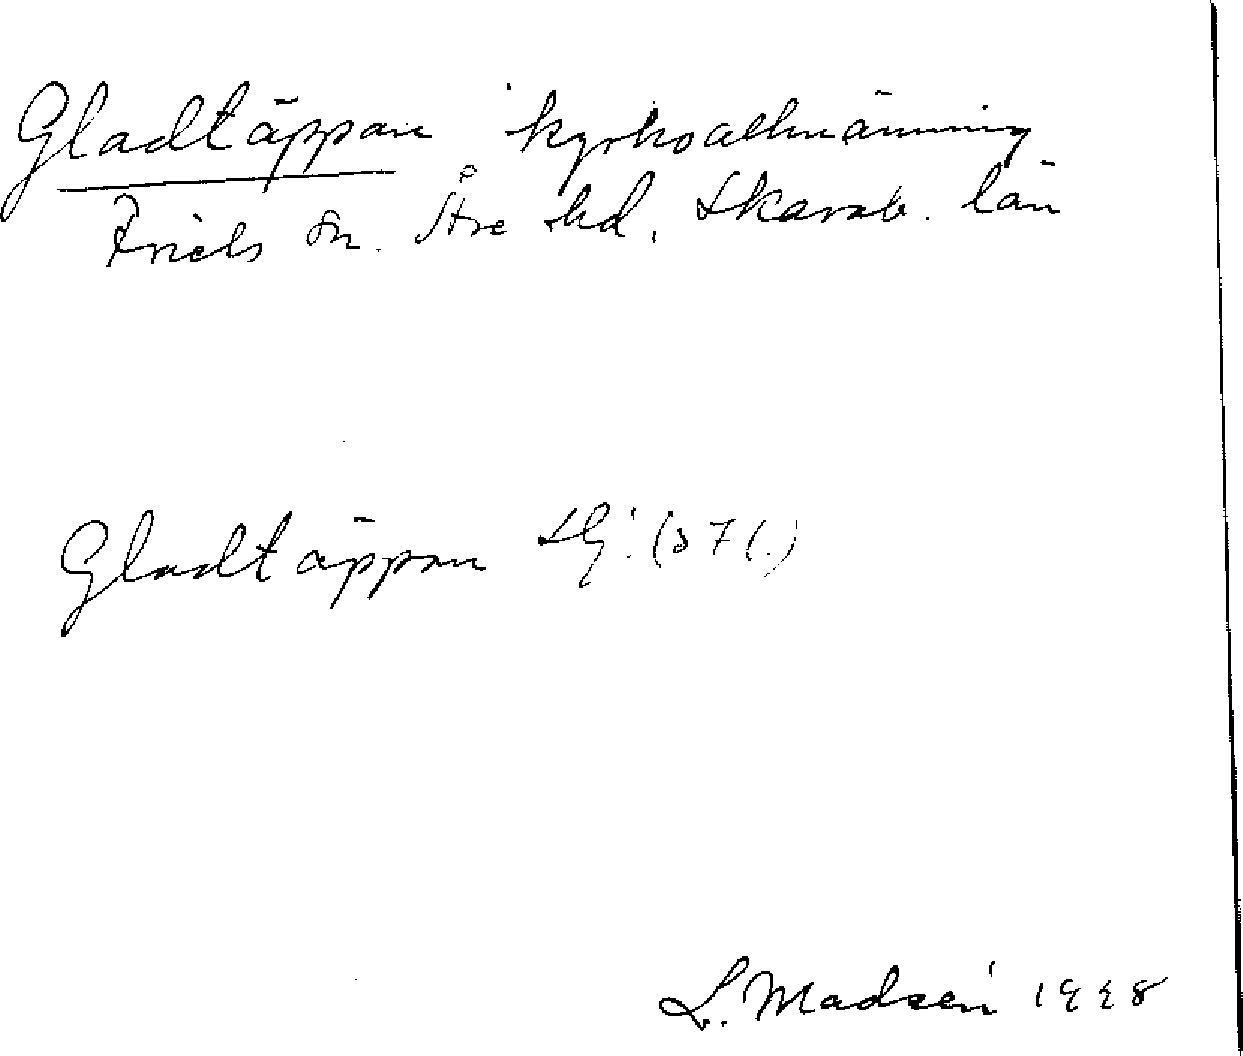 Gladtäppan kyrkoallmänning
Friels sn. Åse hd. Skarab. län
Gladtäppan
L. Madsén 1928